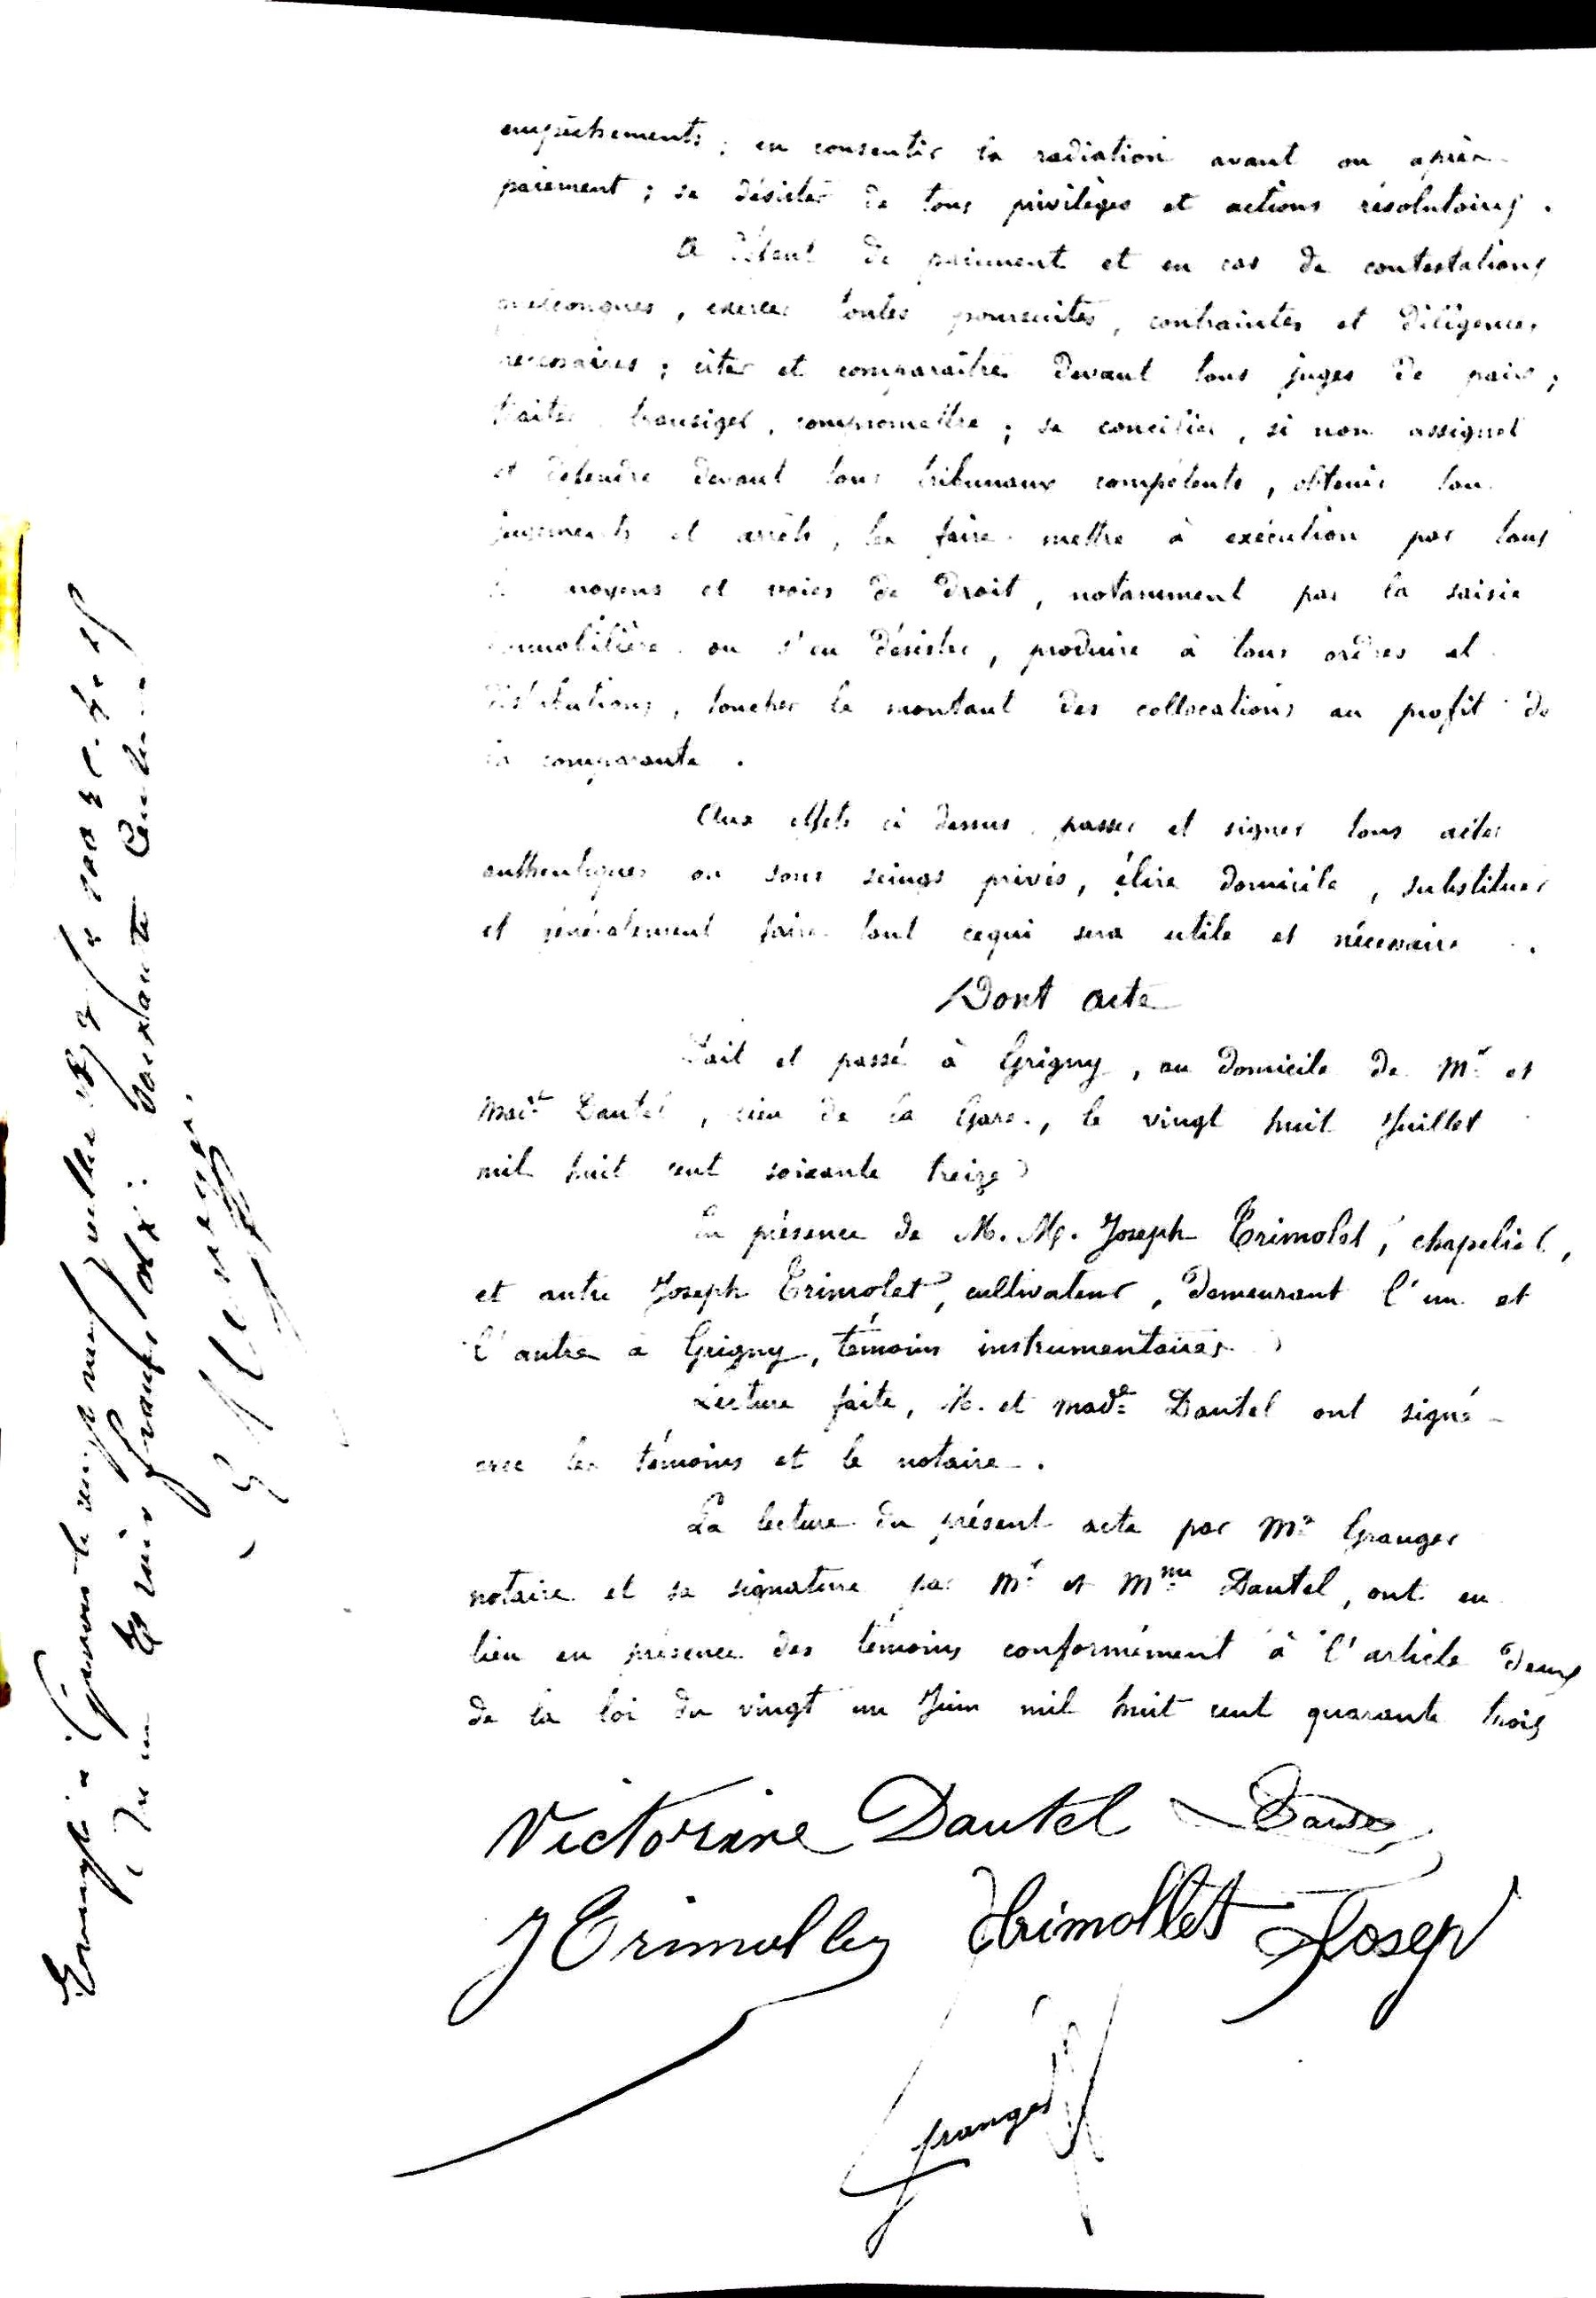 empêchements ; en consentir la radiation avant ou après
paiement ; se désister de tous privilèges et actions résolutoires .
A défaut de paiement et en cas de contestations
quelconques , exercer toutes poursuites , contraintes et diligences
nécessaires ; citer et comparaître devant tous juges de paix ;
traiter transiger , compromettre ; se concilier , si non assigner
et défendre devant tous tribunaux compétents , obtenir tous
jugements et arrêts , les faire mettre à exécution par tous
moyens et voies de droit , notamment par la saisie
immobilière ou s'en désister , produire à tous ordres et
distributions , toucher le montant des collocations au profit de
la comparante .
Aux effets ci dessus passer et signer tous actes
authentiques ou sous seings privés , élire domicile , substituer
et généralement faire tout cequi sera utile et nécessaire .
Dont acte
Fait et passé à Grigny , au domicile de Mr et
Made Dautel , lieu de la Gare , le vingt huit Juillet
mil huit cent soixante treize
En présence de M. M. Joseph Trimolet , chapelier ,
et autre Joseph Trimolet , cultivateur , demeurant l'un et
l'autre à Grigny , témoins instrumentaires
Lecture faite , M. et Made Dautel ont signé
avec les témoins et le notaire .
La lecture du présent acte par Me Granger
notaire et sa signature par Mr et Mme Dautel , ont eu
lieu en présence des témoins conformément à l'article deux
de la loi du vingt un Juin mil huit cent quarante trois
Victorine Dautel Dautel
J Trimollet Trimollet Josep
Granger
Enregistré à Givors le vingt neuf Juillet 1873
francs soixante